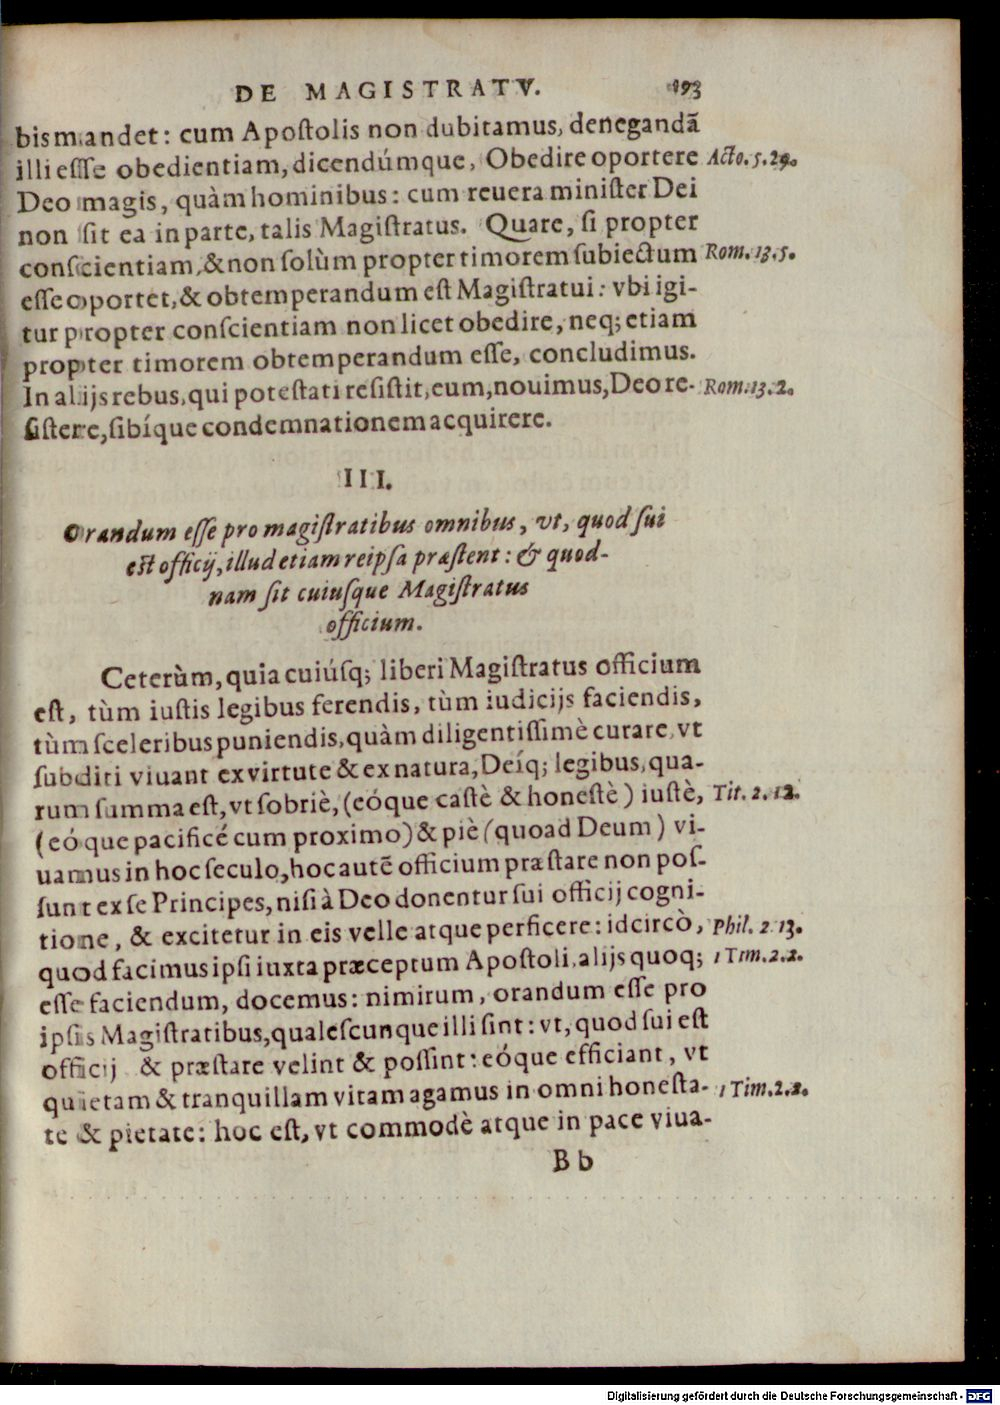 DE MAGISTRATV. 193
bis mandet: cum Apoſtolis non dubitamus, denegandā
illi eſſe obedientiam, dicendúmque, Obedire oportere Acto. 5. 29.
Deo magis, quàm hominibus: cum reuera miniſter Dei
non ſit ea in parte, talis Magiſtratus. Quare, ſi propter
conſcientiam, & non ſolùm propter timorem ſubiectum Rom. 13. 5.
eſſe oportet, & obtemperandum eſt Magiſtratui: vbi igi-
tur propter conſcientiam non licet obedire, neq; etiam
propter timorem obtemperandum eſſe, concludimus.
In alijs rebus, qui poteſtati reſiſtit, eum, nouimus, Deo re- Rom. 13. 2.
ſiſtere, ſibíque condemnationem acquirere.
III.
Orandum eſſe pro magiſtratibus omnibus, vt, quod ſui
eſt officij, illud etiam reipſa præſtent: & quod-
nam ſit cuiuſque Magiſtratus
officium.
Ceterùm, quia cuiúſq; liberi Magiſtratus officium
eſt, tùm iuſtis legibus ferendis, tùm iudicijs faciendis,
tùm ſceleribus puniendis, quàm diligentiſſimè curare, vt
ſubditi viuant ex virtute & ex natura, Deíq; legibus, qua-
rum ſumma eſt, vt ſobriè, (eóque caſtè & honeſtè) iuſtè, Tit. 2. 12.
(eóque pacificé cum proximo) & piè (quoad Deum) vi-
uamus in hoc ſeculo, hoc autē officium præſtare non poſ-
ſunt ex ſe Principes, niſi à Deo donentur ſui officij cogni-
tione, & excitetur in eis velle atque perficere: idcircò, Phil. 2. 13.
quod facimus ipſi iuxta præceptum Apoſtoli, alijs quoq; 1 Tim. 2. 2.
eſſe faciendum, docemus: nimirum, orandum eſſe pro
ipſis Magiſtratibus, qualeſcunque illi ſint: vt, quod ſui eſt
officij & præſtare velint & poſſint: eóque efficiant, vt
quietam & tranquillam vitam agamus in omni honeſta- 1 Tim. 2. 2.
te & pietate: hoc eſt, vt commodè atque in pace viua-
B b
Digitalisierung gefördert durch die Deutsche Forschungsgemeinschaft - DFG